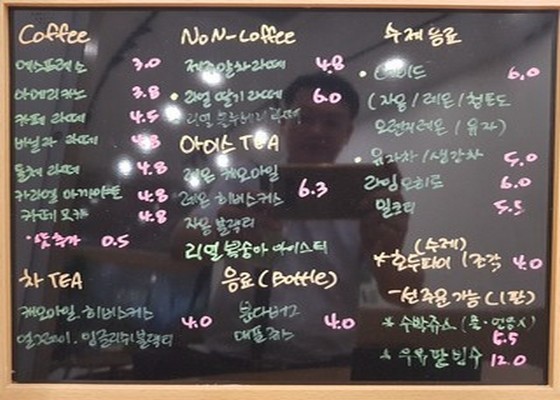 Coffee
에스프레소 3.0
아메리카노 3.8
카페 라떼 4.5
바닐라 라떼 4.8
돌체 라떼 4.8
카라멜 마끼아또 4.8
카페 모카 4.8
샷추가 0.5
차 TEA
캐모마일. 히비스커스
얼그레이. 잉글리쉬블랙티 4.0
NoN-Coffee
제주말차라떼 4.8
리얼 딸기라떼 6.0
리얼 블루베리라떼
아이스 TEA
레몬 캐모마일
레몬 히비스커스 6.3
자몽 블랙티
리얼 복숭아 아이스티
음료 (Bottle)
4.0
수제음료
에이드 6.0
(자몽 / 레몬 / 청포도
오렌지레몬 / 유자)
유자차 / 생강차 5.0
라임모히또 6.0
밀크티 5.5
(수제)
* 호두파이 1조각 4.0
- 선주문 가능 (1판)
* 수박쥬스
6.5
* 우유팥빙수 12.0